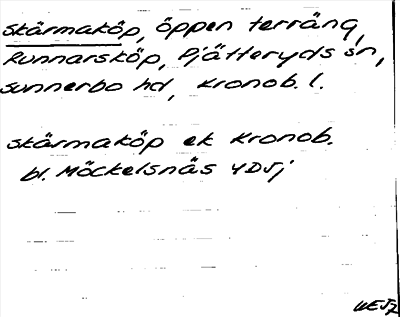 Skärmaköp, öppen terräng,
Runnarsköp, Pjätteryds sn,
Sunnerbo hd, Kronob. l.
Skärmaköp ek Kronob.
bl. Möckelsnäs 4D5j